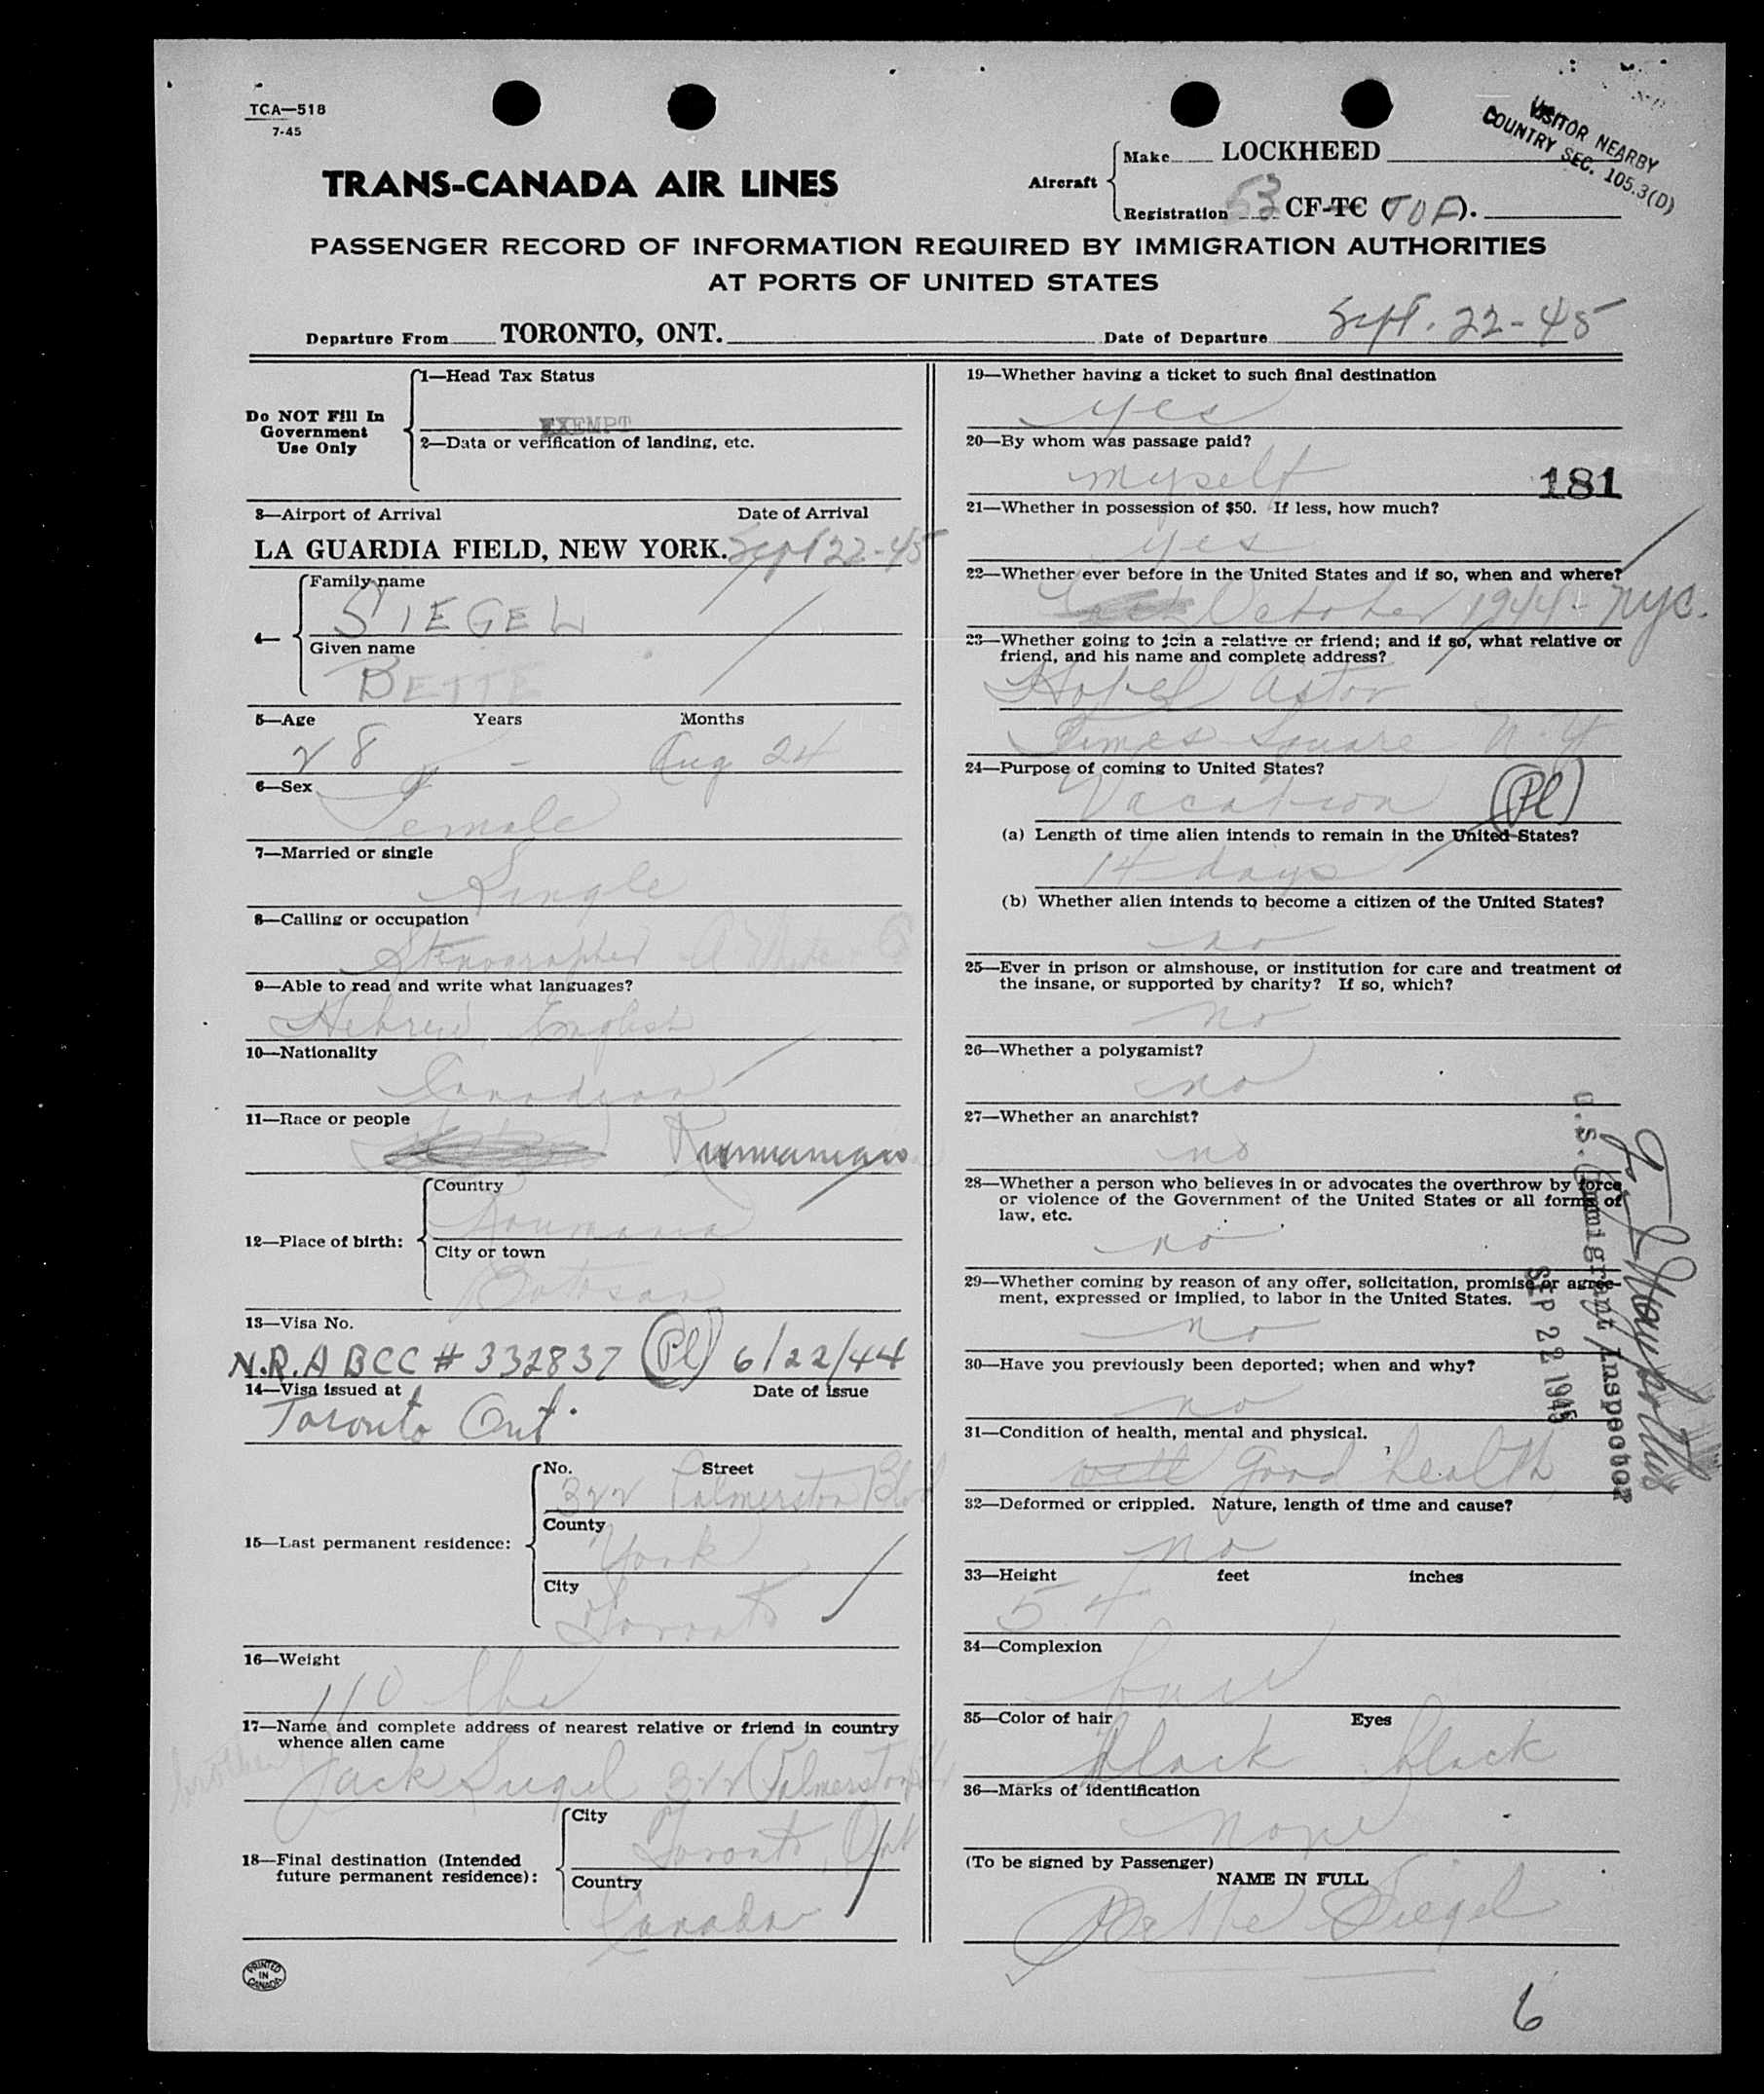 TCA—518
7-45
VISITOR NEARBY
COUNTRY SEC. 105.3(D)
TRANS-CANADA AIR LINES
Aircraft
Make LOCKHEED
Registration 53 CF-TC (TOF).
PASSENGER RECORD OF INFORMATION REQUIRED BY IMMIGRATION AUTHORITIES
AT PORTS OF UNITED STATES
Departure From TORONTO, ONT. Date of Departure Sept. 22-45
Do NOT Fill In
Government
Use Only
1—Head Tax Status
EXEMPT
2—Data or verification of landing, etc.
3—Airport of Arrival Date of Arrival
LA GUARDIA FIELD, NEW YORK. Sept 22-45
4—
Family name
SIEGEL
Given name
BETTE
5—Age Years Months
28 - Aug 24
6—Sex
Female
7—Married or single
Single
8—Calling or occupation
Stenographer
9—Able to read and write what languages?
Hebrew, English
10—Nationality
Canadian
11—Race or people
Rumanian
12—Place of birth:
Country
Roumania
City or town
Botosan
13—Visa No.
N.R.A BCC # 332837 (Pl) 6/22/44
14—Visa issued at Date of issue
Toronto Ont.
15—Last permanent residence:
No. Street
322 Palmerston Blvd
County
York
City
Toronto
16—Weight
110 lbs
17—Name and complete address of nearest relative or friend in country
whence alien came
brother Jack Siegel 322 Palmerston Blvd
18—Final destination (Intended
future permanent residence):
City
Toronto, Ont
Country
Canada
PRINTED
IN
CANADA
19—Whether having a ticket to such final destination
yes
20—By whom was passage paid?
myself 181
21—Whether in possession of $50. If less, how much?
yes
22—Whether ever before in the United States and if so, when and where?
October 1944 - NYC.
23—Whether going to join a relative or friend; and if so, what relative or
friend, and his name and complete address?
Hotel Astor
Times Square N.Y
24—Purpose of coming to United States?
Vacation (Pl)
(a) Length of time alien intends to remain in the United States?
14 days
(b) Whether alien intends to become a citizen of the United States?
no
25—Ever in prison or almshouse, or institution for care and treatment of
the insane, or supported by charity? If so, which?
no
26—Whether a polygamist?
no
27—Whether an anarchist?
no
28—Whether a person who believes in or advocates the overthrow by force
or violence of the Government of the United States or all forms of
law, etc.
no
29—Whether coming by reason of any offer, solicitation, promise or agree-
ment, expressed or implied, to labor in the United States.
no
30—Have you previously been deported; when and why?
no
31—Condition of health, mental and physical.
well good health
32—Deformed or crippled. Nature, length of time and cause?
no
33—Height feet inches
5.4
34—Complexion
fair
35—Color of hair Eyes
black black
36—Marks of identification
none
(To be signed by Passenger)
NAME IN FULL
Bette Siegel
U.S. Immigrant Inspector
SEP 22 1945
6